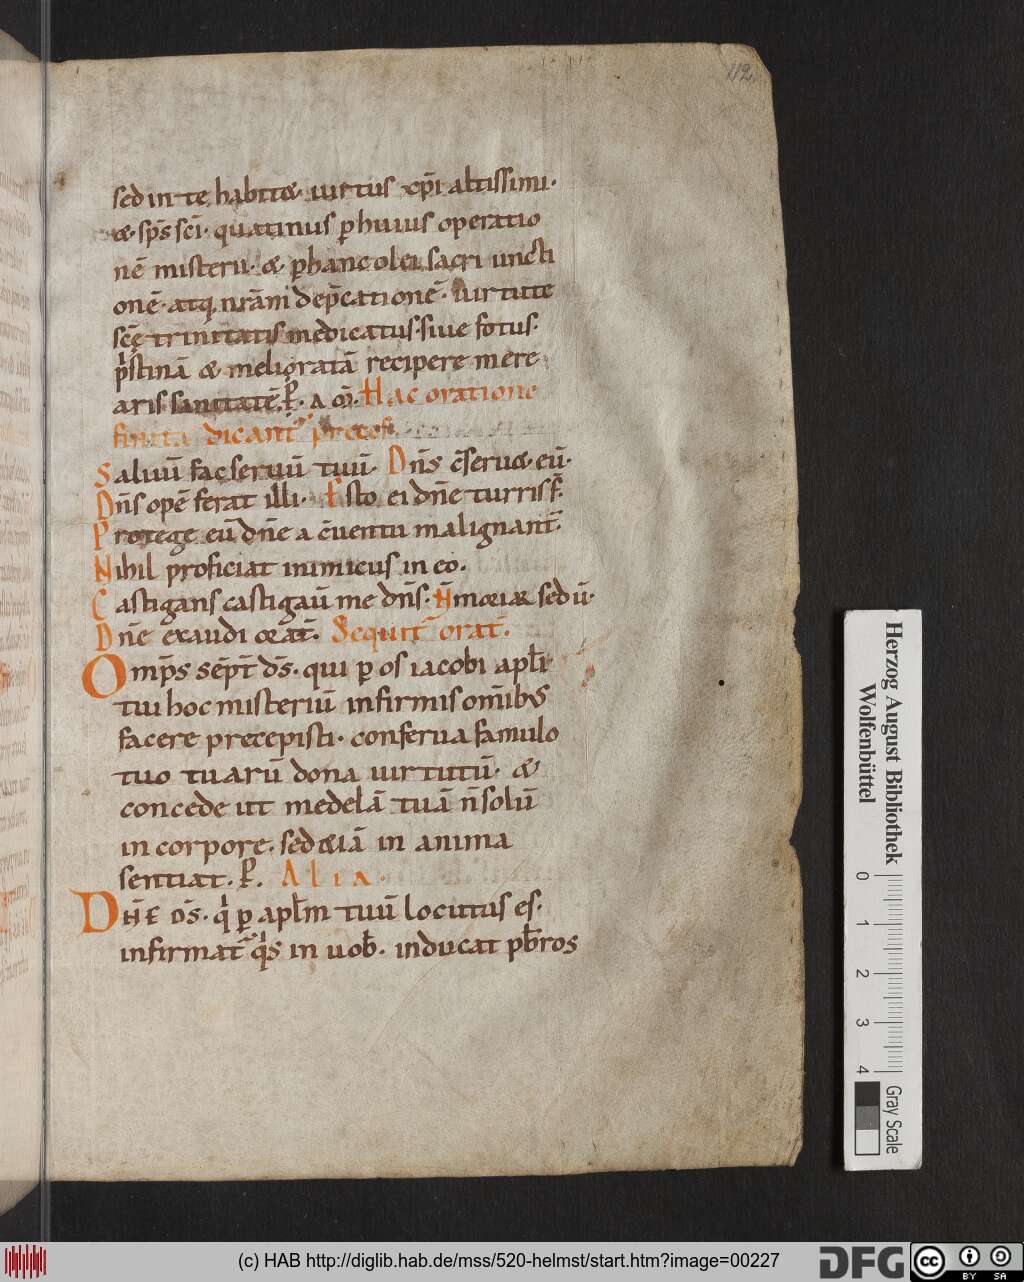 112
sed in te habitæ· uirtus xp̄i altissimi·
&· sp̄s sc̄i· quatinus ꝑ huius operatio
nē misterii· & ꝑ hanc olei sacri uncti
onē· atq; nr̄am dep̄cationē· uirtute
sc̄ę trinitatis medicatus· siue fotus·
pͥstinā & melioratā recipere mere
aris sanitatē. ꝑ· a ō. Hac oratione
finita dicant̄
Saluū fac seruū tuū· Dn̄s c̄seruæ eū·
Dn̄s opē ferat illi· Esto ei dn̄e turris f̄.
Protege eū dn̄e a c̄uentu malignant̄·
Nihil proficiat inimicus in eo.
Castigans castigau̅ me dn̄s· sed ū·
Dn̄e exaudi orat̄. Sequit̄ orat̄.
Omp̄s sēpt̄ d̄s· qui ꝑ os iacobi apl̄i
tui hoc misteriū infirmis om̄ibus
facere precepisti· conserua famulo
tuo tuarū dona uirtutū· &
concede ut medelā tuā n̄ solū
in corpore· sed &iā in anima
sentiat. ꝑ. Alia·
Dn̄e d̄s· qͥ ꝑ apl̄m tuū locutus es·
infirmat̄ qͥs in uob̄· inducat pb̄ros
Herzog August Bibliothek
Wolfenbüttel
0 1 2 3 4
Gray Scale
(c) HAB http://diglib.hab.de/mss/520-helmst/start.htm?image=00227
DFG
cc BY SA